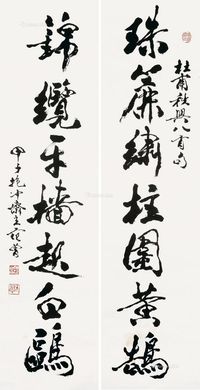 珠簾繡柱圍黃鵠
杜甫秋興八首句
錦纜牙檣起白鷗
甲子